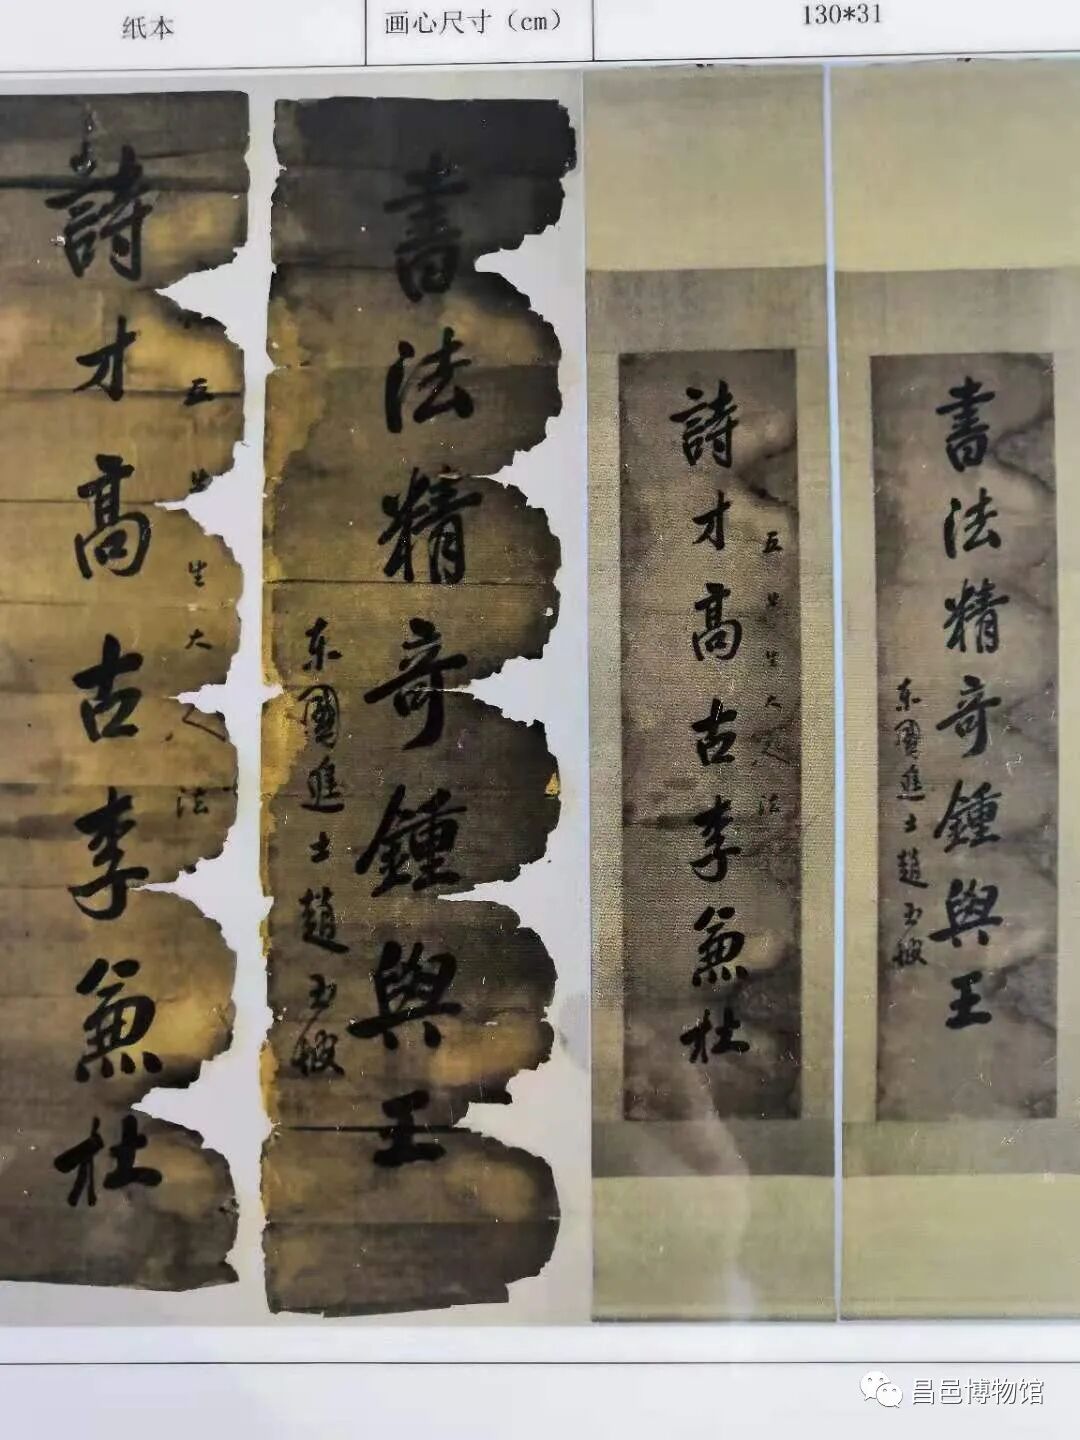 纸本
画心尺寸（cm）
130*31
詩才高古李兼杜
五
生大人法
書法精奇鍾與王
东國進士趙玉坡
詩才高古李兼杜
五
生大人法
書法精奇鍾與王
东國進士趙玉坡
昌邑博物馆